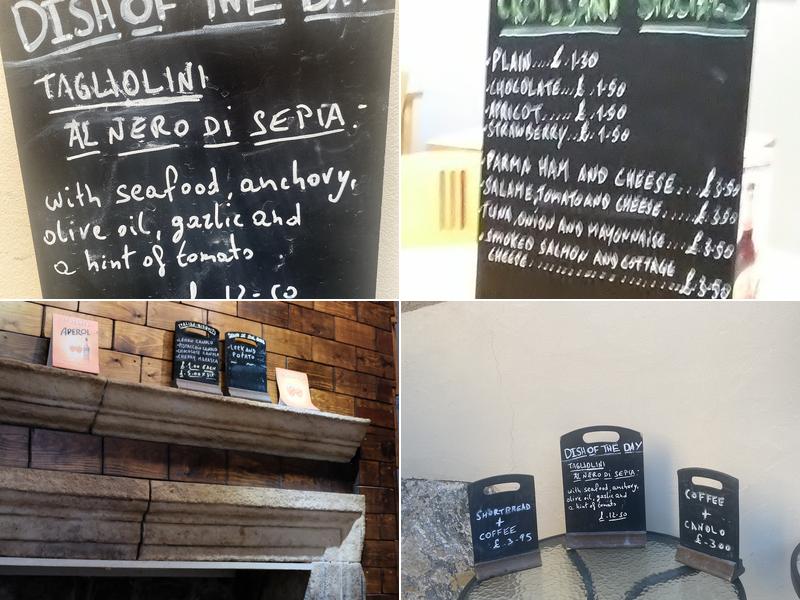 DISH OF THE DAY
TAGLIOLINI
AL NERO DI SEPIA:
with seafood, anchovy,
olive oil, garlic and
a hint of tomato
£ 12.50
CROISSANT SPECIALS
PLAIN....£ 1.30
CHOCOLATE...£ .1.50
APRICOT.....£ .1.50
STRAWBERRY..£ .1.50
PARMA HAM AND CHEESE...£ 3.50
SALAME, TOMATO AND CHEESE...£ 3.50
TUNA, ONION AND MAYONNAISE....£ 3.50
SMOKED SALMON AND COTTAGE
CHEESE................£ 3.50
APEROL
LEMON CANOLO
PISTACCHIO CANOLO
CHOCOLATE CANOLO
LEEK AND
POTATO
DISH OF THE DAY
TAGLIOLINI
AL NERO DI SEPIA:
with seafood, anchovy,
olive oil, garlic and
a hint of tomato
£ 12.50
SHORTBREAD
+
COFFEE
£ 3.95
COFFEE
+
CANOLO
£ 3.00